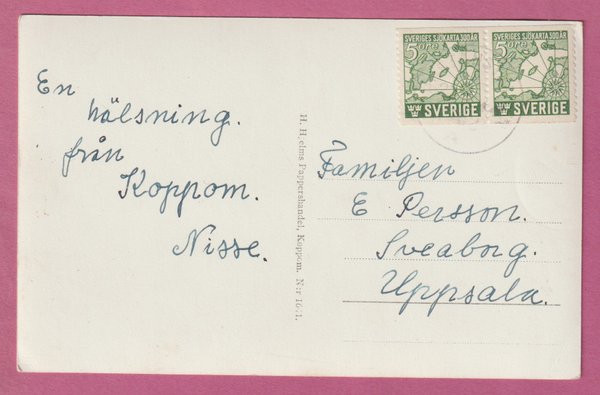 En
hälsning.
från
Koppom.
Nisse.
H. Hjelms Pappershandel, Koppom. N:r
SVERIGES SJÖKARTA 300 ÅR
5 ÖRE
SVERIGE
SVERIGES SJÖKARTA 300 ÅR
5 ÖRE
SVERIGE
Familjen
E Persson.
Sveaborg.
Uppsala.